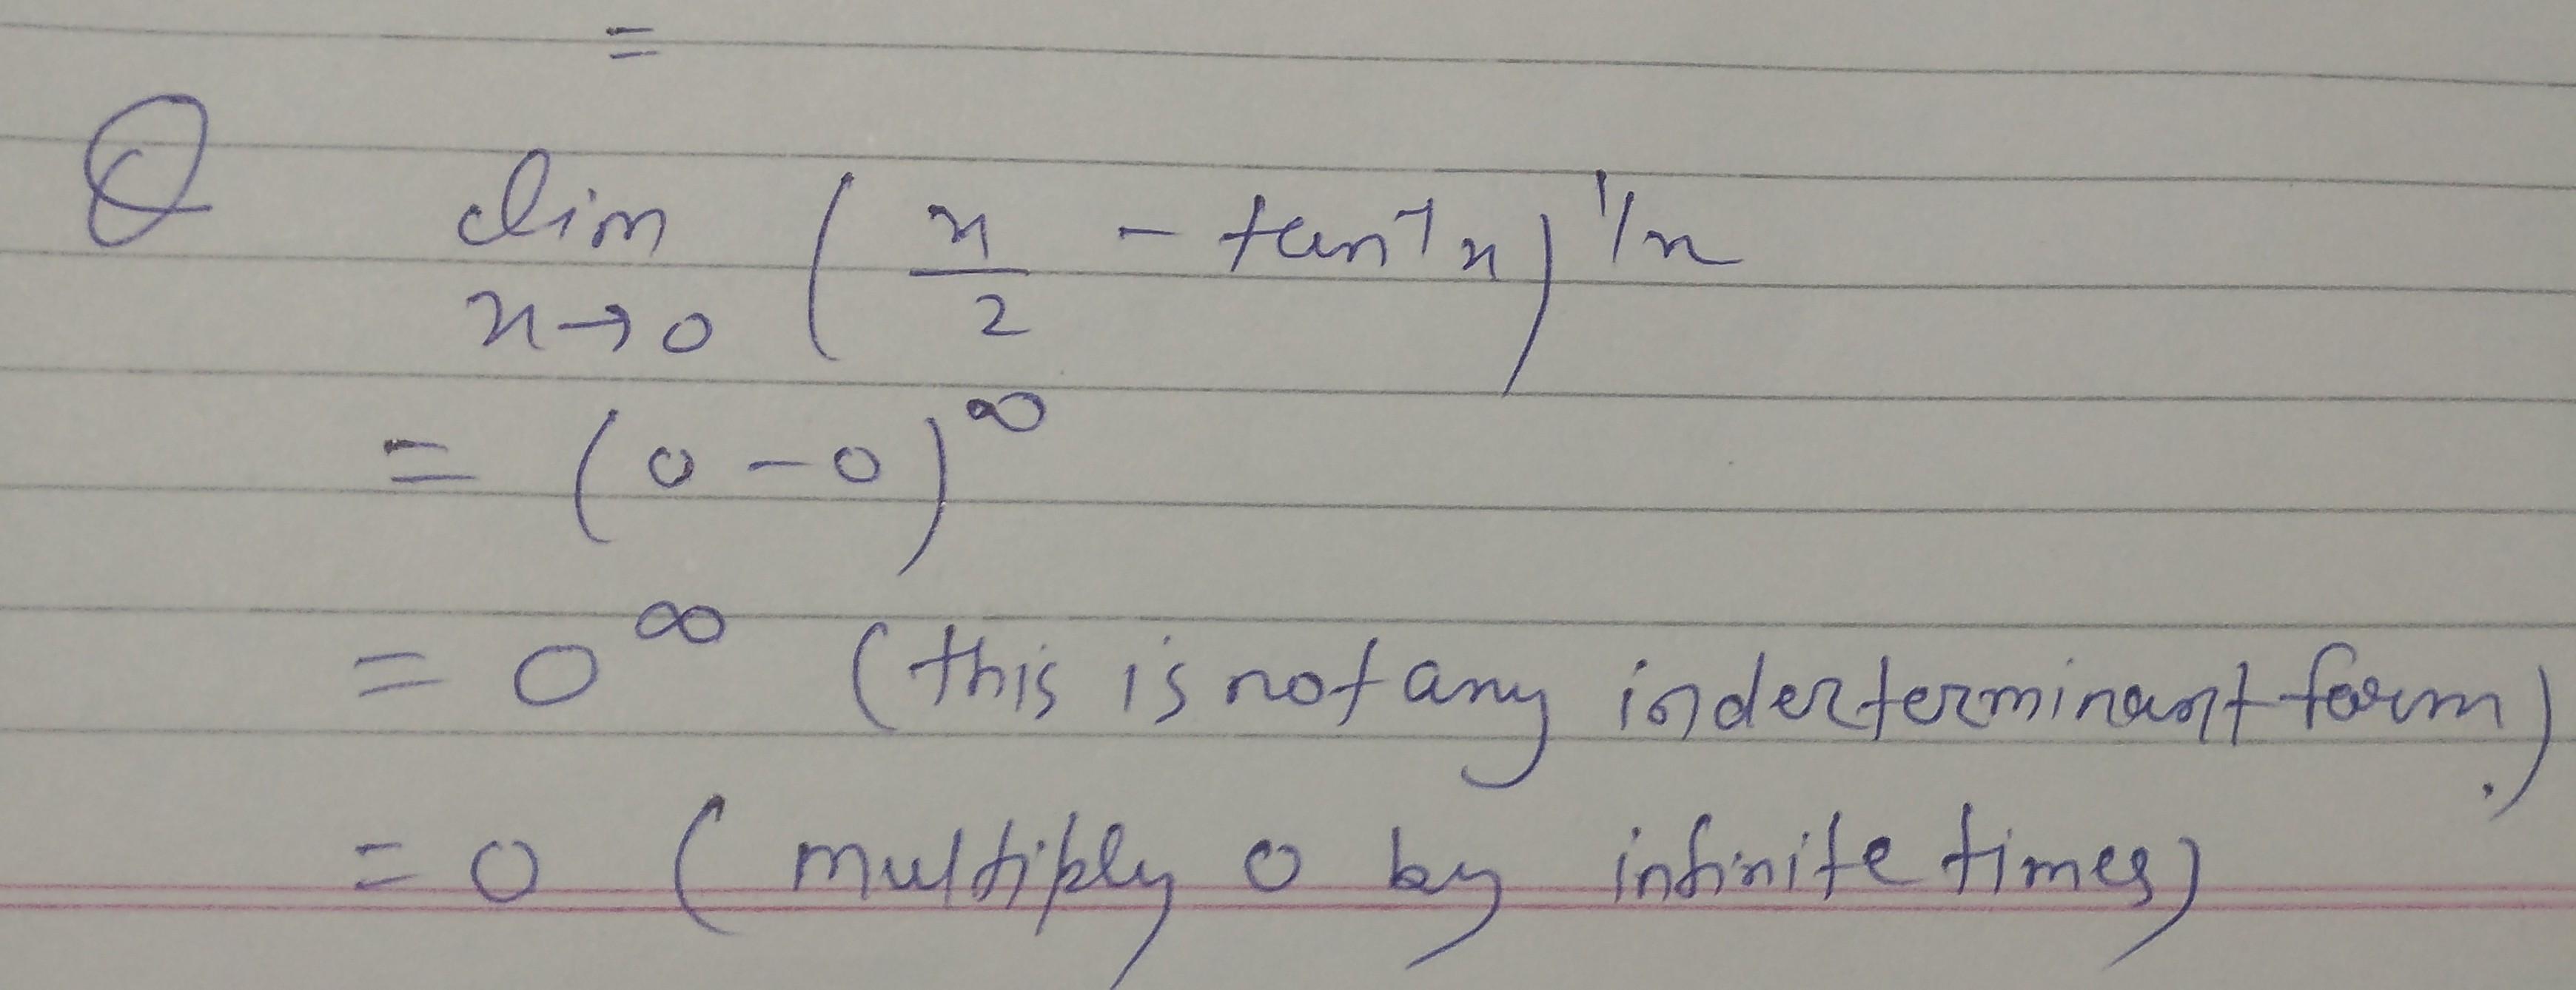 =
Q lim x→0 (x/2 - tan⁻¹x)^1/x
= (0-0)^∞
= 0^∞ (this is not any inderterminant form).
= 0 (multiply 0 by infinite times)